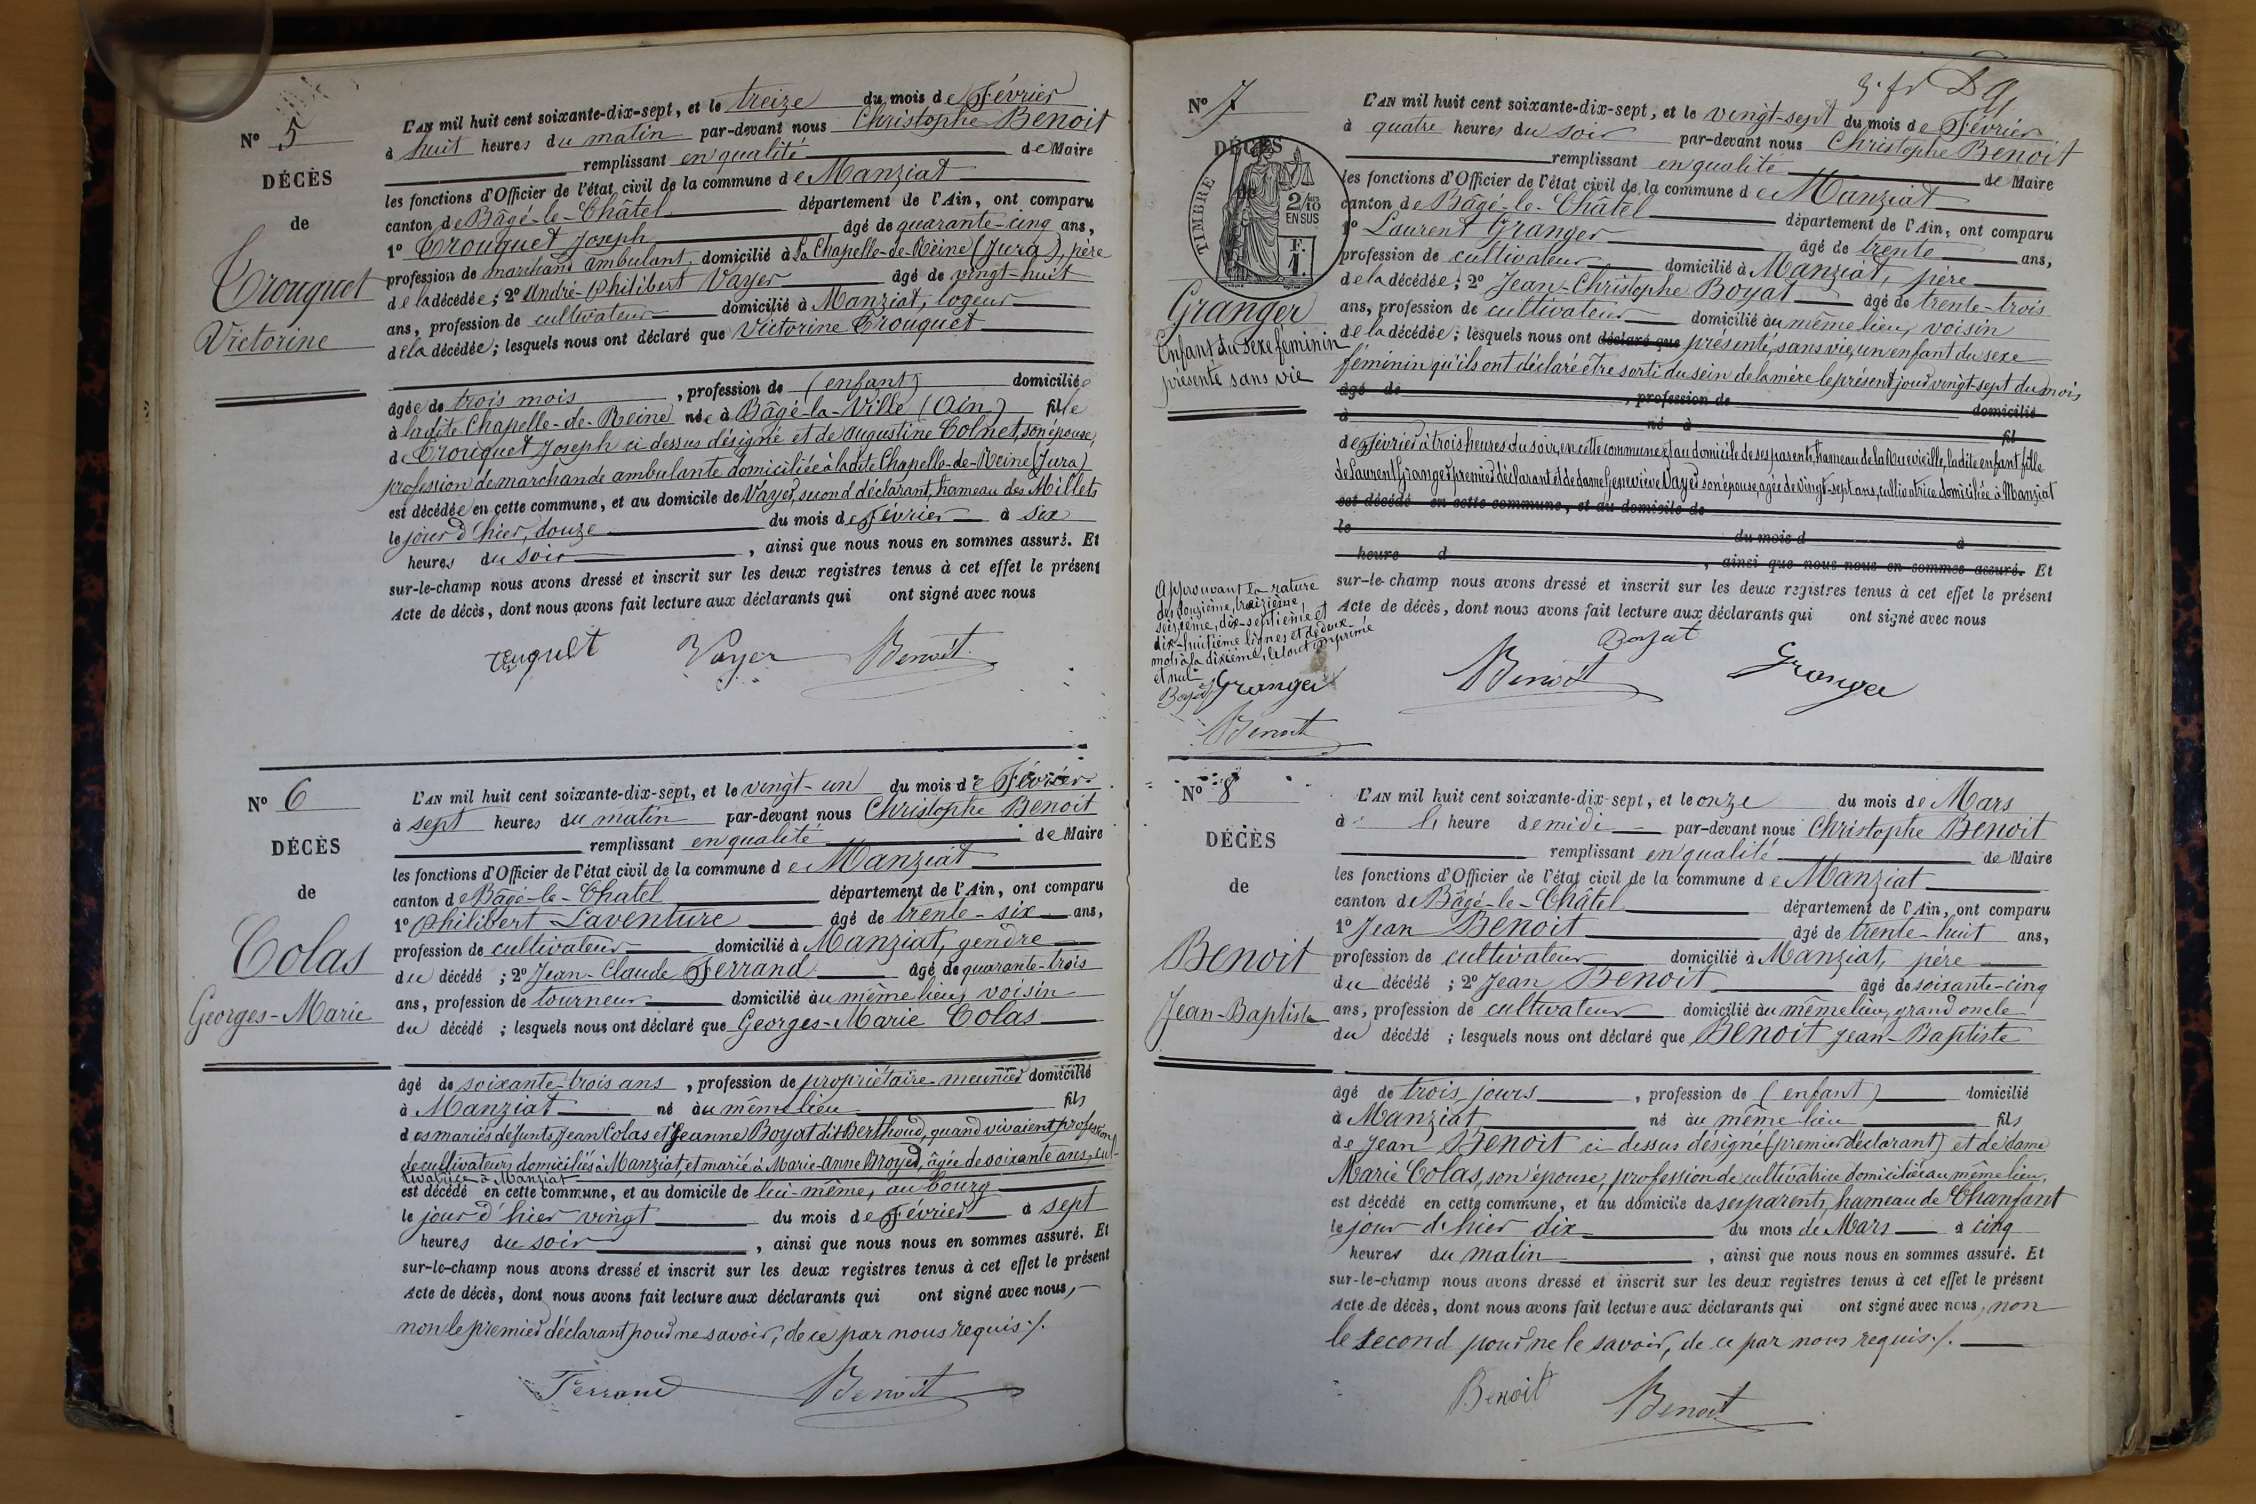 N° 5
DÉCÈS
de
Trouquet
Victorine
L'AN mil huit cent soixante-dix-sept, et le treize du mois de Février
à huit heures du matin par-devant nous Christophe Benoit
remplissant en qualité de Maire
les fonctions d'Officier de l'état civil de la commune de Manziat
canton de Bâgé-le-Châtel département de l'Ain, ont comparu
1° Trouquet Joseph âgé de quarante-cinq ans,
profession de marchand ambulant domicilié à la Chapelle-de-Reine (Jura), père
de la décédée; 2° André-Philibert Vayer âgé de vingt-huit
ans, profession de cultivateur domicilié à Manziat, logeur
de la décédée; lesquels nous ont déclaré que Victorine Trouquet
âgée de trois mois, profession de (enfant) domiciliée
à ladite Chapelle-de-Reine née à Bâgé-la-Ville (Ain) fille
de Trouquet Joseph ci dessus désigné et de Augustine Colnet, son épouse,
profession de marchande ambulante domiciliée à ladite Chapelle-de-Reine (Jura)
est décédée en cette commune, et au domicile de Vayer, second déclarant, hameau des Millets
le jour d'hier, douze du mois de Février à six
heures du soir, ainsi que nous nous en sommes assuré. Et
sur-le-champ nous avons dressé et inscrit sur les deux registres tenus à cet effet le présent
Acte de décès, dont nous avons fait lecture aux déclarants qui ont signé avec nous
Vayer Benoit
N° 6
DÉCÈS
de
Colas
Georges-Marie
L'AN mil huit cent soixante-dix-sept, et le vingt-un du mois de Février
à sept heures du matin par-devant nous Christophe Benoit
remplissant en qualité de Maire
les fonctions d'Officier de l'état civil de la commune de Manziat
canton de Bâgé-le-Chatel département de l'Ain, ont comparu
1° Philibert Laventure âgé de trente-six ans,
profession de cultivateur domicilié à Manziat, gendre
du décédé; 2° Jean-Claude Ferrand âgé de quarante-trois
ans, profession de tourneur domicilié au même lieu, voisin
du décédé; lesquels nous ont déclaré que Georges-Marie Colas
âgé de soixante-trois ans, profession de propriétaire-meunier domicilié
à Manziat né au même lieu fils
des mariés défunts Jean Colas et Jeanne Boyat dit Berthoud, quand vivaient profession
de cultivateurs domiciliés à Manziat, et marié à Marie-Anne Broyer, âgée de soixante ans, cul-
tivatrice à Manziat
est décédé en cette commune, et au domicile de lui-même, au bourg
le jour d'hier vingt du mois de Février à sept
heures du soir, ainsi que nous nous en sommes assuré. Et
sur-le-champ nous avons dressé et inscrit sur les deux registres tenus à cet effet le présent
Acte de décès, dont nous avons fait lecture aux déclarants qui ont signé avec nous,
non le premier déclarant pour ne savoir, de ce par nous requis./.
Ferrand Benoit
N° 7
DÉCÈS
TIMBRE
2/10
EN SUS
F.
1.
Granger
Enfant du sexe féminin
présenté sans vie
L'AN mil huit cent soixante-dix-sept, et le vingt-sept du mois de Février
à quatre heures du soir par-devant nous Christophe Benoit
remplissant en qualité de Maire
les fonctions d'Officier de l'état civil de la commune de Manziat
canton de Bâgé-le-Châtel département de l'Ain, ont comparu
1° Laurent Granger âgé de trente ans,
profession de cultivateur domicilié à Manziat, père
de la décédée; 2° Jean-Christophe Boyat âgé de trente-trois
ans, profession de cultivateur domicilié au même lieu, voisin
de la décédée; lesquels nous ont déclaré que présenté, sans vie, un enfant du sexe
féminin qu'ils ont déclaré être sorti du sein de la mère le présent jour vingt-sept du mois
âgé de, profession de domicilié
à né à fil
de Février à trois heures du soir, en cette commune et au domicile de ses parents, hameau de la Rue vieille, ladite enfant fille
de Laurent Granger premier déclarant et de dame Geneviève Vayer son épouse, âgée de vingt-sept ans, cultivatrice domiciliée à Manziat
est décédé en cette commune, et au domicile de
le du mois d à
heure d, ainsi que nous nous en sommes assuré. Et
sur-le-champ nous avons dressé et inscrit sur les deux registres tenus à cet effet le présent
Acte de décès, dont nous avons fait lecture aux déclarants qui ont signé avec nous
Approuvant la rature
des douzième, treizième,
seizième, dix-septième et
dix-huitième lignes et de deux
mots à la dixième, le tout imprimé
et nul
Boyat Granger
Benoit
Boyat
Benoit Granger
N° 8
DÉCÈS
de
Benoit
Jean-Baptiste
L'AN mil huit cent soixante-dix-sept, et le onze du mois de Mars
à heure de midi par-devant nous Christophe Benoit
remplissant en qualité de Maire
les fonctions d'Officier de l'état civil de la commune de Manziat
canton de Bâgé-le-Châtel département de l'Ain, ont comparu
1° Jean Benoit âgé de trente-huit ans,
profession de cultivateur domicilié à Manziat, père
du décédé; 2° Jean Benoit âgé de soixante-cinq
ans, profession de cultivateur domicilié au même lieu, grand oncle
du décédé; lesquels nous ont déclaré que Benoit Jean-Baptiste
âgé de trois jours, profession de (enfant) domicilié
à Manziat né au même lieu fils
de Jean Benoit ci dessus désigné (premier déclarant) et de dame
Marie Colas, son épouse, profession de cultivatrice domiciliée au même lieu,
est décédé en cette commune, et au domicile de ses parents, hameau de Chanfant
le jour d'hier dix du mois de Mars à cinq
heures du matin, ainsi que nous nous en sommes assuré. Et
sur-le-champ nous avons dressé et inscrit sur les deux registres tenus à cet effet le présent
Acte de décès, dont nous avons fait lecture aux déclarants qui ont signé avec nous, non
le second pour ne le savoir, de ce par nous requis./.
Benoit Benoit